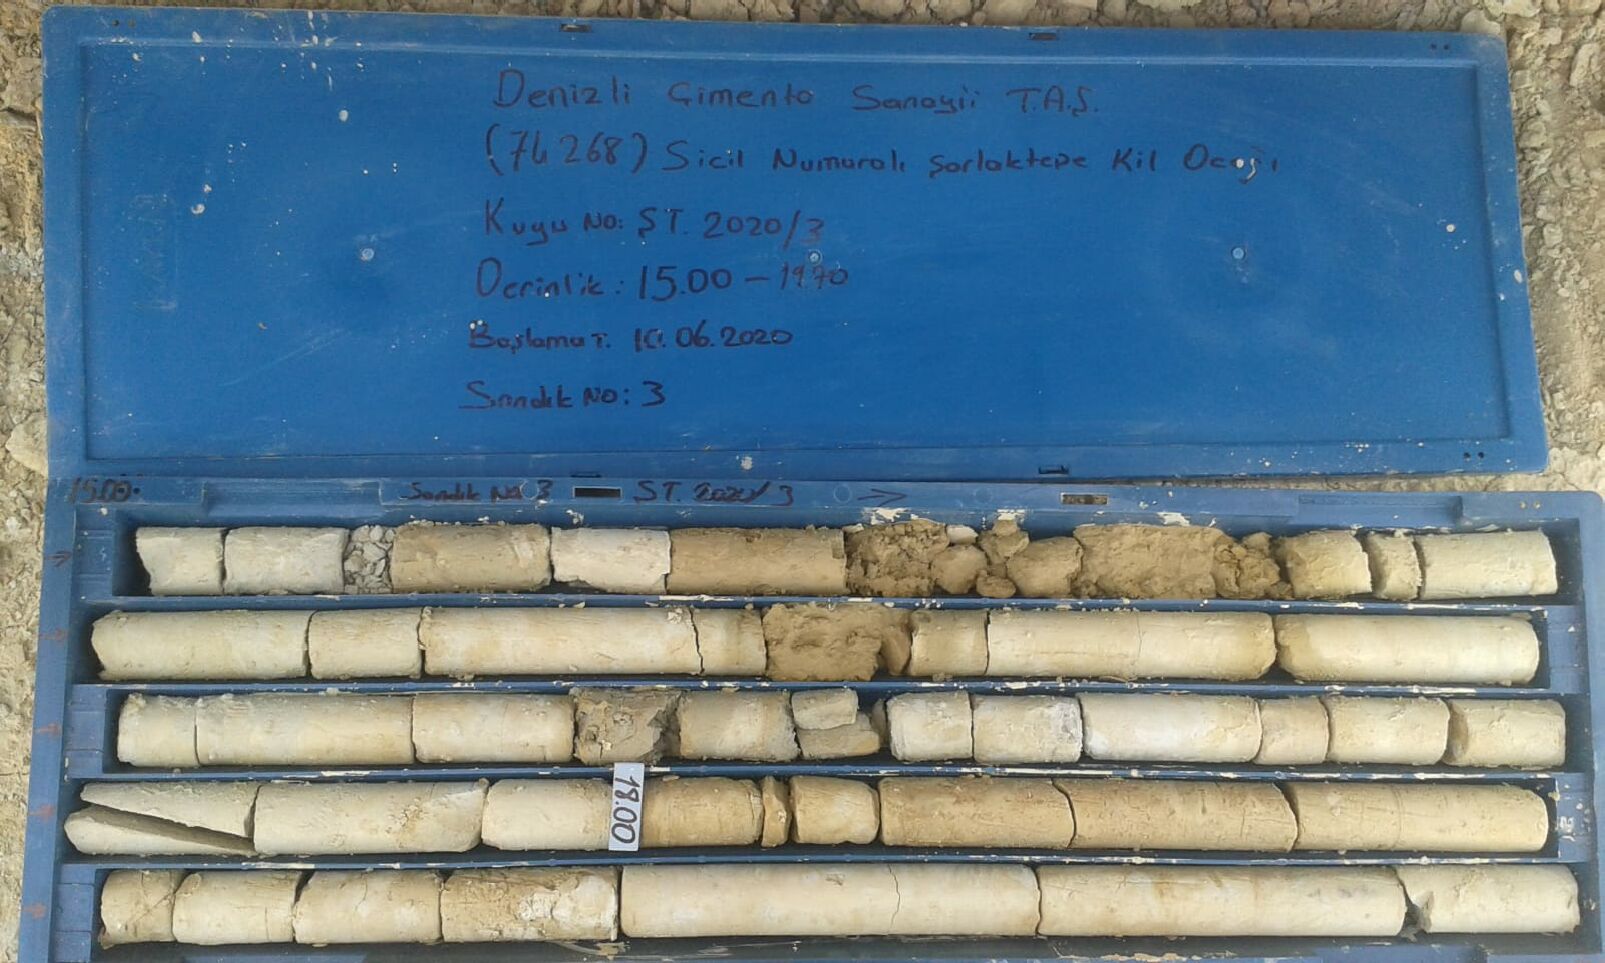 Denizli Çimento Sanayii T.A.Ş.
(74268) Sicil Numaralı Şarlaktepe Kil Ocağı
Kuyu No: ŞT. 2020/3
Derinlik: 15.00 - 19.70
Başlama T. 10.06.2020
Sandık No: 3
15.00.
Sandık No 3 ST. 2020/3
18.00